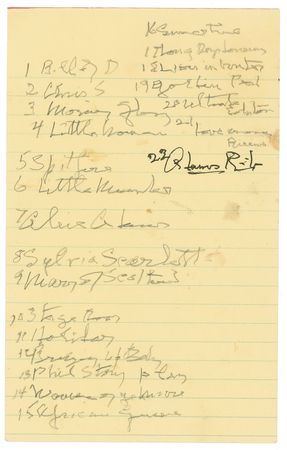 1 Bill of D
2 Chris S
3 Morning Glory
4 Little Women
5 Spitfire
6 Little Minister
7 Alice Adams
8 Sylvia Scarlett
9 Mary of Scotland
10 Stage Door
11 Holiday
12 Bringing Up Baby
13 Phil Story play
14 Woman of year
15 African Queen
16 Summertime
17 Long Day's Journey
18 Lion in Winter
19 Golden Pond
20
21 Love among
Ruins
22 Adams Rib